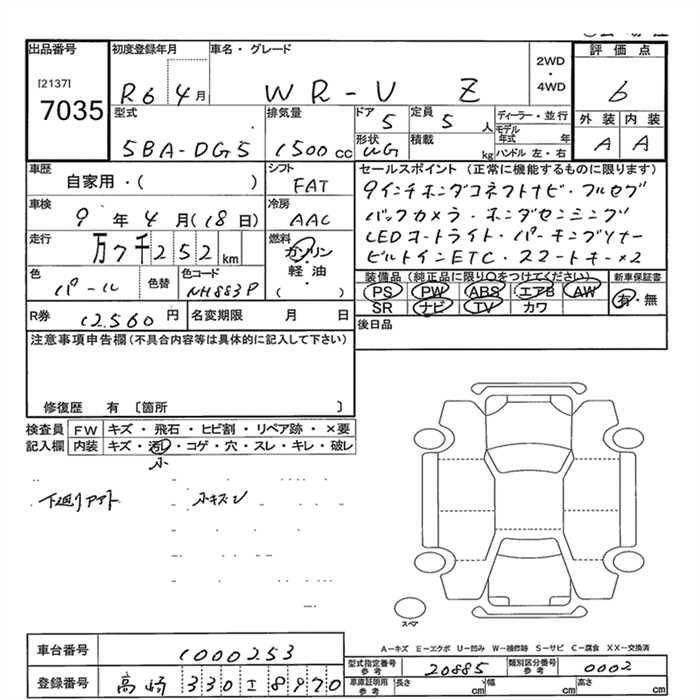 出品番号 初度登録年月 車名・グレード 2WD・4WD 評価点
[2137]
7035 R6 4月 WR-V Z 6
型式 排気量 ドア 5 定員 5人 ディーラー・並行 外装 内装
5BA-DG5 1500cc 形状 UG 積載 kg モデル年式 年 ハンドル 左・右 A A
車歴 シフト セールスポイント (正常に機能するものに限ります)
自家用・( ) FAT 9インチホンダコネクトナビ・フルセグ
車検 冷房 バックカメラ・ホンダセンシング
9年4月(18日) AAC LEDオートライト・パーキングソナー
走行 燃料 ビルトインETC・スマートキー×2
万7千252km ガソリン
色 色替 色コード 軽油 装備品 (純正品に限り○をつけてください) 新車保証書
パール NH883P ( ) PS PW ABS エアB AW 有・無
SR ナビ TV カワ
R券 12,560円 名変期限 月 日 後日品
注意事項申告欄(不具合内容等は具体的に記入して下さい)
修復歴 有 〔箇所 〕
検査員 FW キズ・飛石・ヒビ割・リペア跡・×要
記入欄 内装 キズ・汚レ・コゲ・穴・スレ・キレ・破レ
小
下廻り 小キズ
スペア
A－キズ E－エクボ U－凹み W－補修跡 S－サビ C－腐食 XX－交換済
車台番号 1000253
型式指定番号 参考 20885 類別区分番号 参考 0002
登録番号 高崎 330 8970
車庫証明用 参考 長さ cm 幅 cm 高さ cm